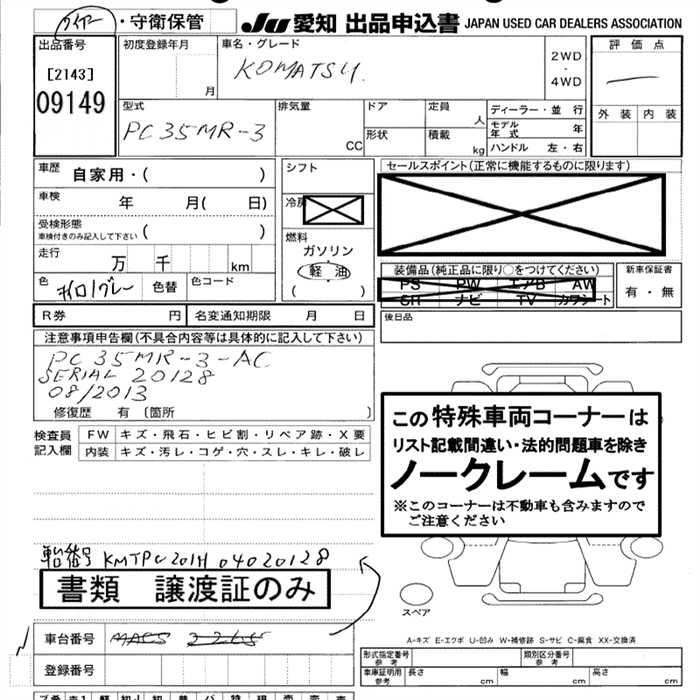 ・守衛保管 JU 愛知 出品申込書 JAPAN USED CAR DEALERS ASSOCIATION
出品番号 初度登録年月 車名・グレード 評価点
[2143] 月 KOMATSU. 2WD・4WD
09149 外装 内装
型式 排気量 ドア 定員 ディーラー・並行
PC35MR-3 CC 形状 人 モデル年式 年
積載 kg ハンドル 左・右
車歴 自家用・( ) シフト セールスポイント(正常に機能するものに限ります)
車検 年 月( 日) 冷房
受検形態 ( ) 燃料
車検付きのみ記入して下さい ガソリン
走行 万 千 km 軽油 装備品(純正品に限り○をつけてください) 新車保証書
( ) PS PW エアB AW 有・無
色 色替 色コード SR ナビ TV カワシート
R券 円 名変通知期限 月 日 後日品
注意事項申告欄(不具合内容等は具体的に記入して下さい)
PC 35MR-3-AC
SERIAL 20128
08/2013
修復歴 有 〔箇所 〕
この特殊車両コーナーは
リスト記載間違い・法的問題車を除き
ノークレームです
※このコーナーは不動車も含みますので
ご注意ください
検査員記入欄 FW キズ・飛石・ヒビ割・リペア跡・X要
内装 キズ・汚レ・コゲ・穴・スレ・キレ・破レ
KMTPC201H04020128
書類 譲渡証のみ
スペア
車台番号
A-キズ E-エクボ U-凹み W-補修跡 S-サビ C-腐食 XX-交換済
登録番号 形式指定番号 参考 類別区分番号 参考
車庫証明用 参考 長さ cm 幅 cm 高さ cm